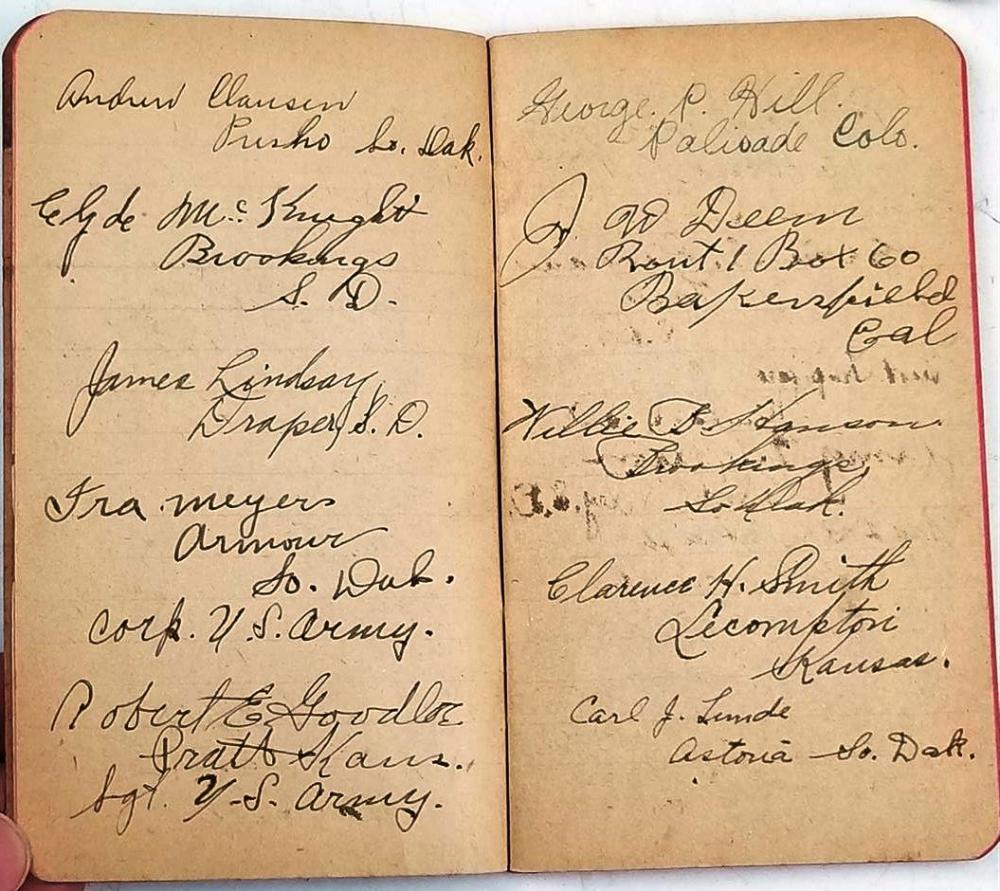 Andrew Clausen
Presho So. Dak.
Clyde McKnight
Brookings
S. D.
James Lindsay
Draper, S. D.
Ira meyers
Armour
So. Dak.
Corp. U.S. Army.
Robert E Goodloe
Pratt Kans.
Sgt. U.S. Army.
George. P. Hill.
Palisade Colo.
J. W Deem
Rout. 1 Box 60
Bakersfield
Cal
Willie F. Hanson
Brookings,
So Dak.
Clarence H. Smith
Lecompton
Kansas.
Carl J. Lunde
Astoria So. Dak.